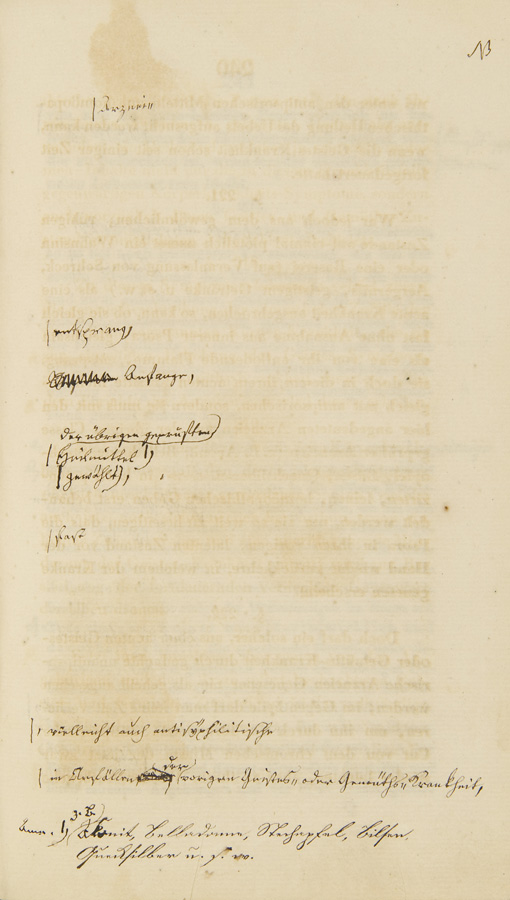 NB
| Arznei=
| entsprang,
Anfange,
der übrigen geprüften
| Heilmittel 1)
| gewählt),
| fast
|, vielleicht auch antisyphilitische
| in Anfällen der vorigen Geistes= oder Gemüths=Krankheit,
Anm. 1) z. B. Akonit, Belladonne, Stechapfel, Bilsen,
Quecksilber u. s. w.